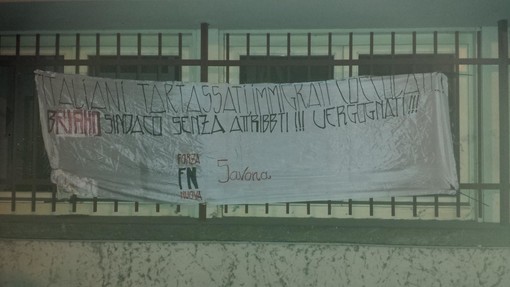 ITALIANI TARTASSATI IMMIGRATI COCCOLATI
BRUTTO SINDACO SENZA ATTRIBBTI !!! VERGOGNATI !!!
FORZA
FN
NUOVA
Savona